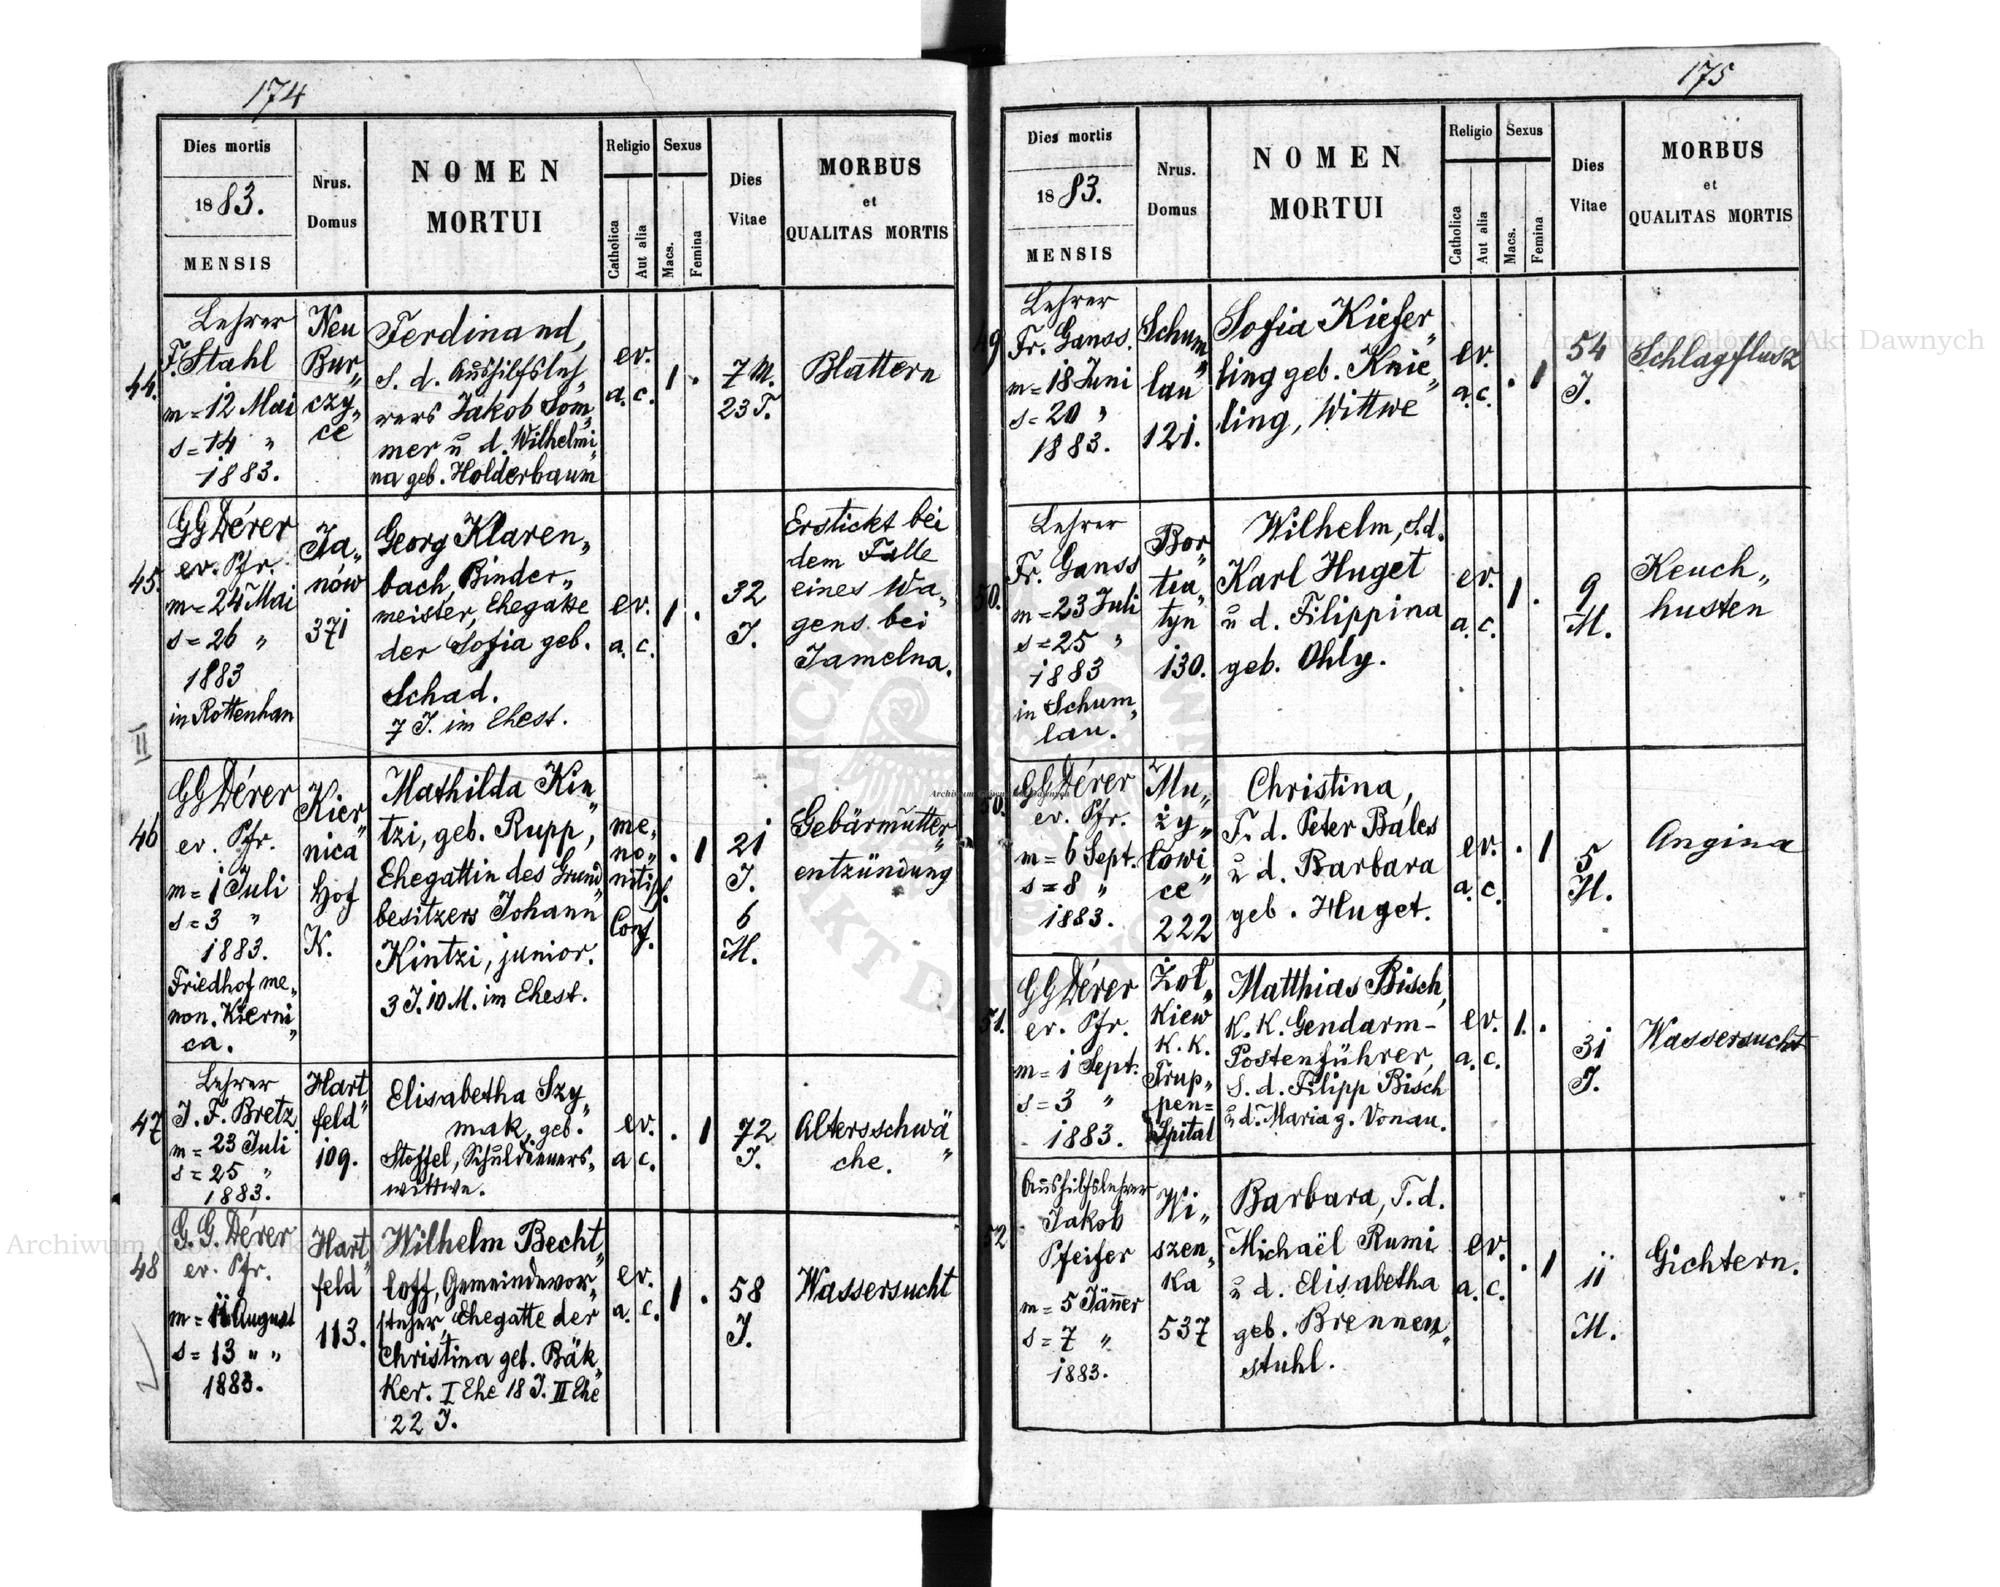 174
Dies mortis
1883.
MENSIS
Nrus.
Domus
NOMEN
MORTUI
Religio
Catholica
Aut alia
Sexus
Macs.
Femina
Dies
Vitae
MORBUS
et
QUALITAS MORTIS
44.
Lehrer
F. Stahl
m = 12 Mai
s = 14 "
1883.
Neu
Bur„
czy„
ce
Ferdinand,
S. d. Aushilfsleh„
rers Jakob Som„
mer u d. Wilhelmi„
na geb. Holderbaum
ev.
a. c.
1 .
7 M.
23 T.
Blattern
45.
GG Dérer
ev. Pfr.
m = 24 Mai
s = 26 "
1883
in Rottenhan
Ja„
nów
371
Georg Klaren„
bach, Binder„
meister, Ehegatte
der Sofia geb.
Schad.
7 J. im Ehest.
ev.
a. c.
1 .
32
J.
Erstickt bei
dem Falle
eines Wa„
gens bei
Jamelna.
II
46
GG Dérer
ev. Pfr.
m = 1 Juli
s = 3 "
1883.
Friedhof me„
non. Kierni„
ca.
Kier„
nica
Hof
K.
Mathilda Kin„
tzi, geb. Rupp,
Ehegattin des Grund„
besitzers Johann
Kintzi, junior.
3 J. 10 M. im Ehest.
me„
no„
nitisch.
Conf.
. 1
21
J.
6
M.
Gebärmutter„
entzündung
47
Lehrer
J. F. Bretz
m = 23 Juli
s = 25 "
1883.
Hart„
feld
109.
Elisabetha Szy„
mak, geb.
Stoffel, Schuldieners„
wittwe.
ev.
a c.
. 1
72
J.
Altersschwä„
che.
48
G. G. Dérer
ev. Pfr.
m = 11 August
s = 13 " "
1883.
Hart„
feld
113.
Wilhelm Becht„
loff, Gemeindevor„
steher, Ehegatte der
Christina geb. Bäk„
ker. I Ehe 18 J. II Ehe
22 J.
ev.
a. c.
1 .
58
J.
Wassersucht
175
Dies mortis
1883.
MENSIS
Nrus.
Domus
NOMEN
MORTUI
Religio
Catholica
Aut alia
Sexus
Macs.
Femina
Dies
Vitae
MORBUS
et
QUALITAS MORTIS
49
Lehrer
Fr. Ganss.
m = 18 Juni
s = 20 "
1883.
Schum„
lau
121.
Sofia Kiefer„
ling geb. Knie„
ling, Wittwe
ev.
a. c.
. 1
54
J.
Schlagflusz
50.
Lehrer
Fr. Ganss
m = 23 Juli
s = 25 "
1883
in Schum„
lau.
Bor„
tia„
tyn
130.
Wilhelm, S. d.
Karl Huget
u d. Filippina
geb. Ohly.
ev.
a. c.
1 .
9
M.
Keuch„
husten
50.
GG Dérer
ev. Pfr.
m = 6 Sept.
s = 8 "
1883.
Mu„
ży„
łowi„
ce
222
Christina,
T. d. Peter Bales
u d. Barbara
geb. Huget.
ev.
a. c.
. 1
5
M.
Angina
51.
GG Dérer
ev. Pfr.
m = 1 Sept.
s = 3 "
1883.
Żoł„
kiew
K. K.
Trup„
pen=
Spital
Matthias Bisch,
K. K. Gendarm-
Postenführer,
S. d. Filipp Bisch
u d. Maria g. Vonau.
ev.
a. c.
1 .
31
J.
Wassersucht
52
Aushilfslehrer
Jakob
Pfeifer
m = 5 Jäner
s = 7 "
1883.
Wi„
szen„
ka
537
Barbara, T. d.
Michaël Rumi
u d. Elisabetha
geb. Brennen„
stuhl.
ev.
a. c.
. 1
11
M.
Gichtern.
Archiwum Główne Akt Dawnych